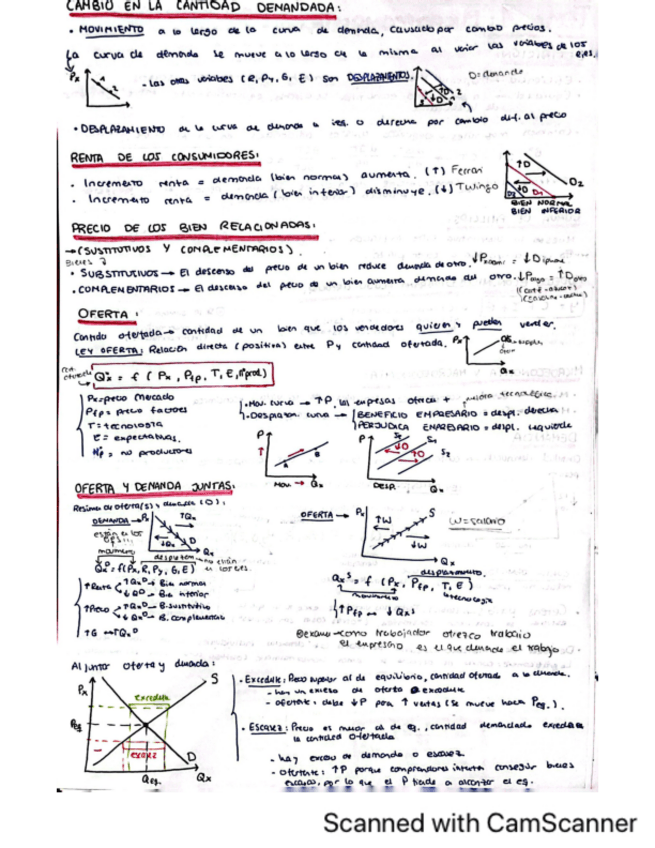 CAMBIO EN LA CANTIDAD DEMANDADA:
• MOVIMIENTO a lo largo de la curva de demanda, causado por cambio precios.
La curva de demanda se mueve a lo largo de la misma al variar las variables de los ejes.
Px
- Las otras variables (R, Py, G, E) son DESPLAZAMIENTOS.
D=demanda
• DESPLAZAMIENTO de la curva de demanda a izq. o derecha por cambio dif. al precio
RENTA DE LOS CONSUMIDORES:
• Incremento renta = demanda (bien normal) aumenta. (↑) Ferrari
• Incremento renta = demanda (bien inferior) disminuye. (↓) Twingo
↑D
↓D
D2
BIEN NORMAL
BIEN INFERIOR
PRECIO DE LOS BIEN RELACIONADAS:
→ (SUSTITUTIVOS Y COMPLEMENTARIOS).
• SUSTITUTIVOS → El descenso del precio de un bien reduce demanda de otro.
• COMPLEMENTARIOS → El descenso del precio de un bien aumenta demanda del otro.
OFERTA:
Cantidad ofertada → cantidad de un bien que los vendedores quieren y pueden vender.
LEY OFERTA: Relación directa (positiva) entre P y cantidad ofertada.
Px
Qx
= f (Px, Pfp, T, E, nºprod.)
Px=precio mercado
Pfp= precio factores
T= tecnologia
E = expectativas.
= nº productores
• Mov. curva → ↑P, las empresas ofrecen +
• Desplazam curva → BENEFICIO EMPRESARIO = despl. derecha
PERJUDICA EMPRESARIO = despl. izquierda
P
A
B
MOV. → Qx
P
S1
S2
DESP.
Qx
OFERTA Y DEMANDA JUNTAS:
Resumen de oferta (S) y demanda (D):
DEMANDA → Px
↑Qx
↓Qx
D
Qx
movimiento
desplazam.
= f(Px, R, Py, G, E)
↑Renta ↑Qxᴰ → Bien normal
↓Qᴰ → Bien inferior
↑Precio ↑Qxᴰ → B. sustitutivo
↓Qxᴰ → B. complementario
↑G → ↑Qxᴰ
OFERTA → Px
S
↑W
↓W
W=salario
Qx
desplazamiento.
Qxˢ = f (Px, Pfp, T, E)
movimiento
tecnologia
↑Pfp → ↓Qxˢ
como trabajador ofrezco trabajo
el empresario es el que demanda el trabajo
Al juntar oferta y demanda:
Px
S
excedente
Peq
escasez
D
Qeq.
Qx
• Excedente: Precio superior al de equilibrio, cantidad ofertada a la demanda.
- hay un exceso de oferta o excedente
- ofertante: debe ↓P para ↑ ventas (se mueve hacia Peq.).
• Escasez: Precio es menor al de eq., cantidad demandada excede a
la cantidad ofertada
- hay exceso de demanda o escasez
- ofertante: ↑P porque compradores intentan conseguir bienes
escasos, por lo que el P tiende a alcanzar el eq.
Scanned with CamScanner